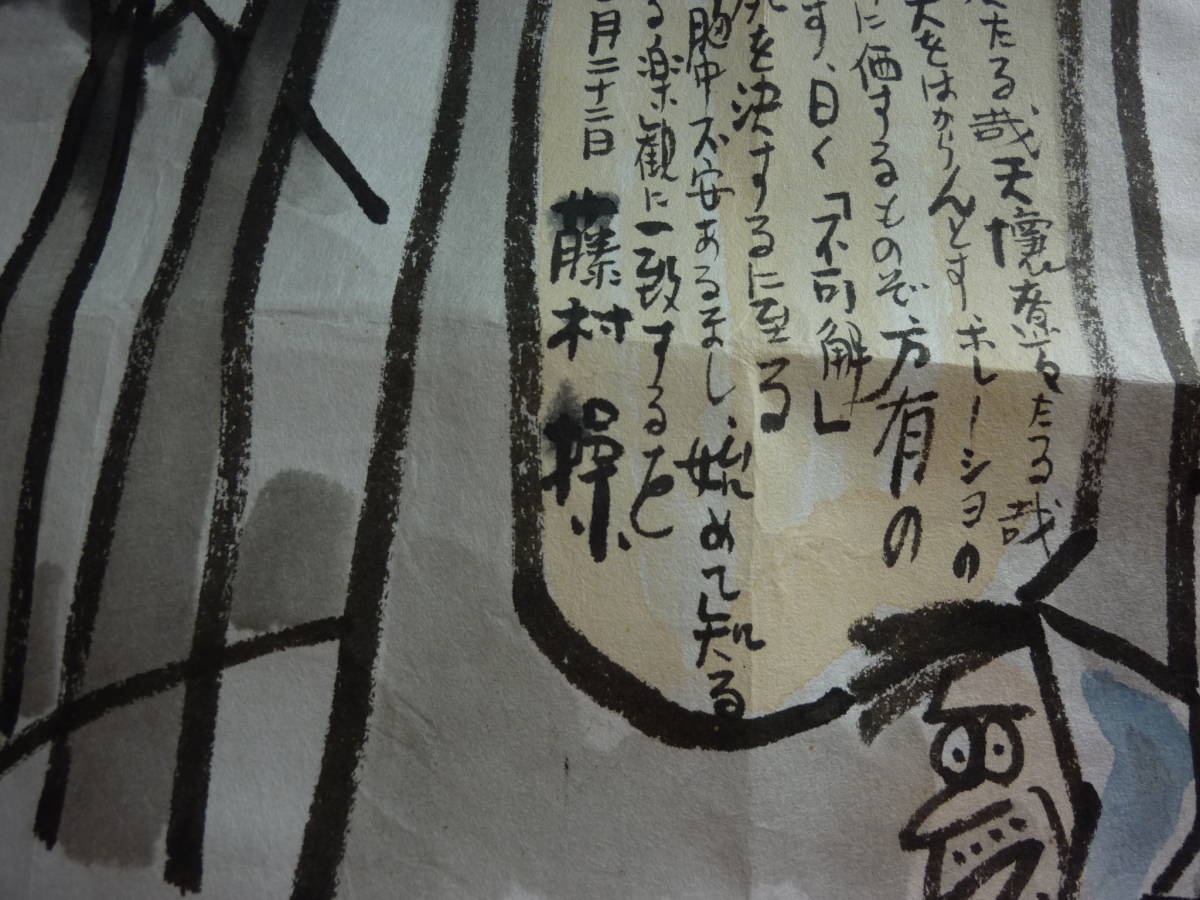 たる哉天壌遼々たる哉
大をはからんとす、ホレーショの
に価するものぞ万有の
す、曰く「不可解」
を決するに至る
胸中不安あるなし、始めて知る
る楽観に一致するを
月二十二日 藤村 操